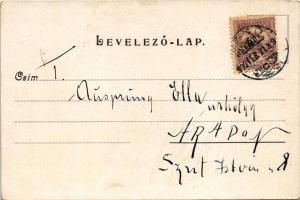 LEVELEZŐ-LAP.
Czim
Ausprung Ella
úrhölgy
ARADON
Szent István u 8